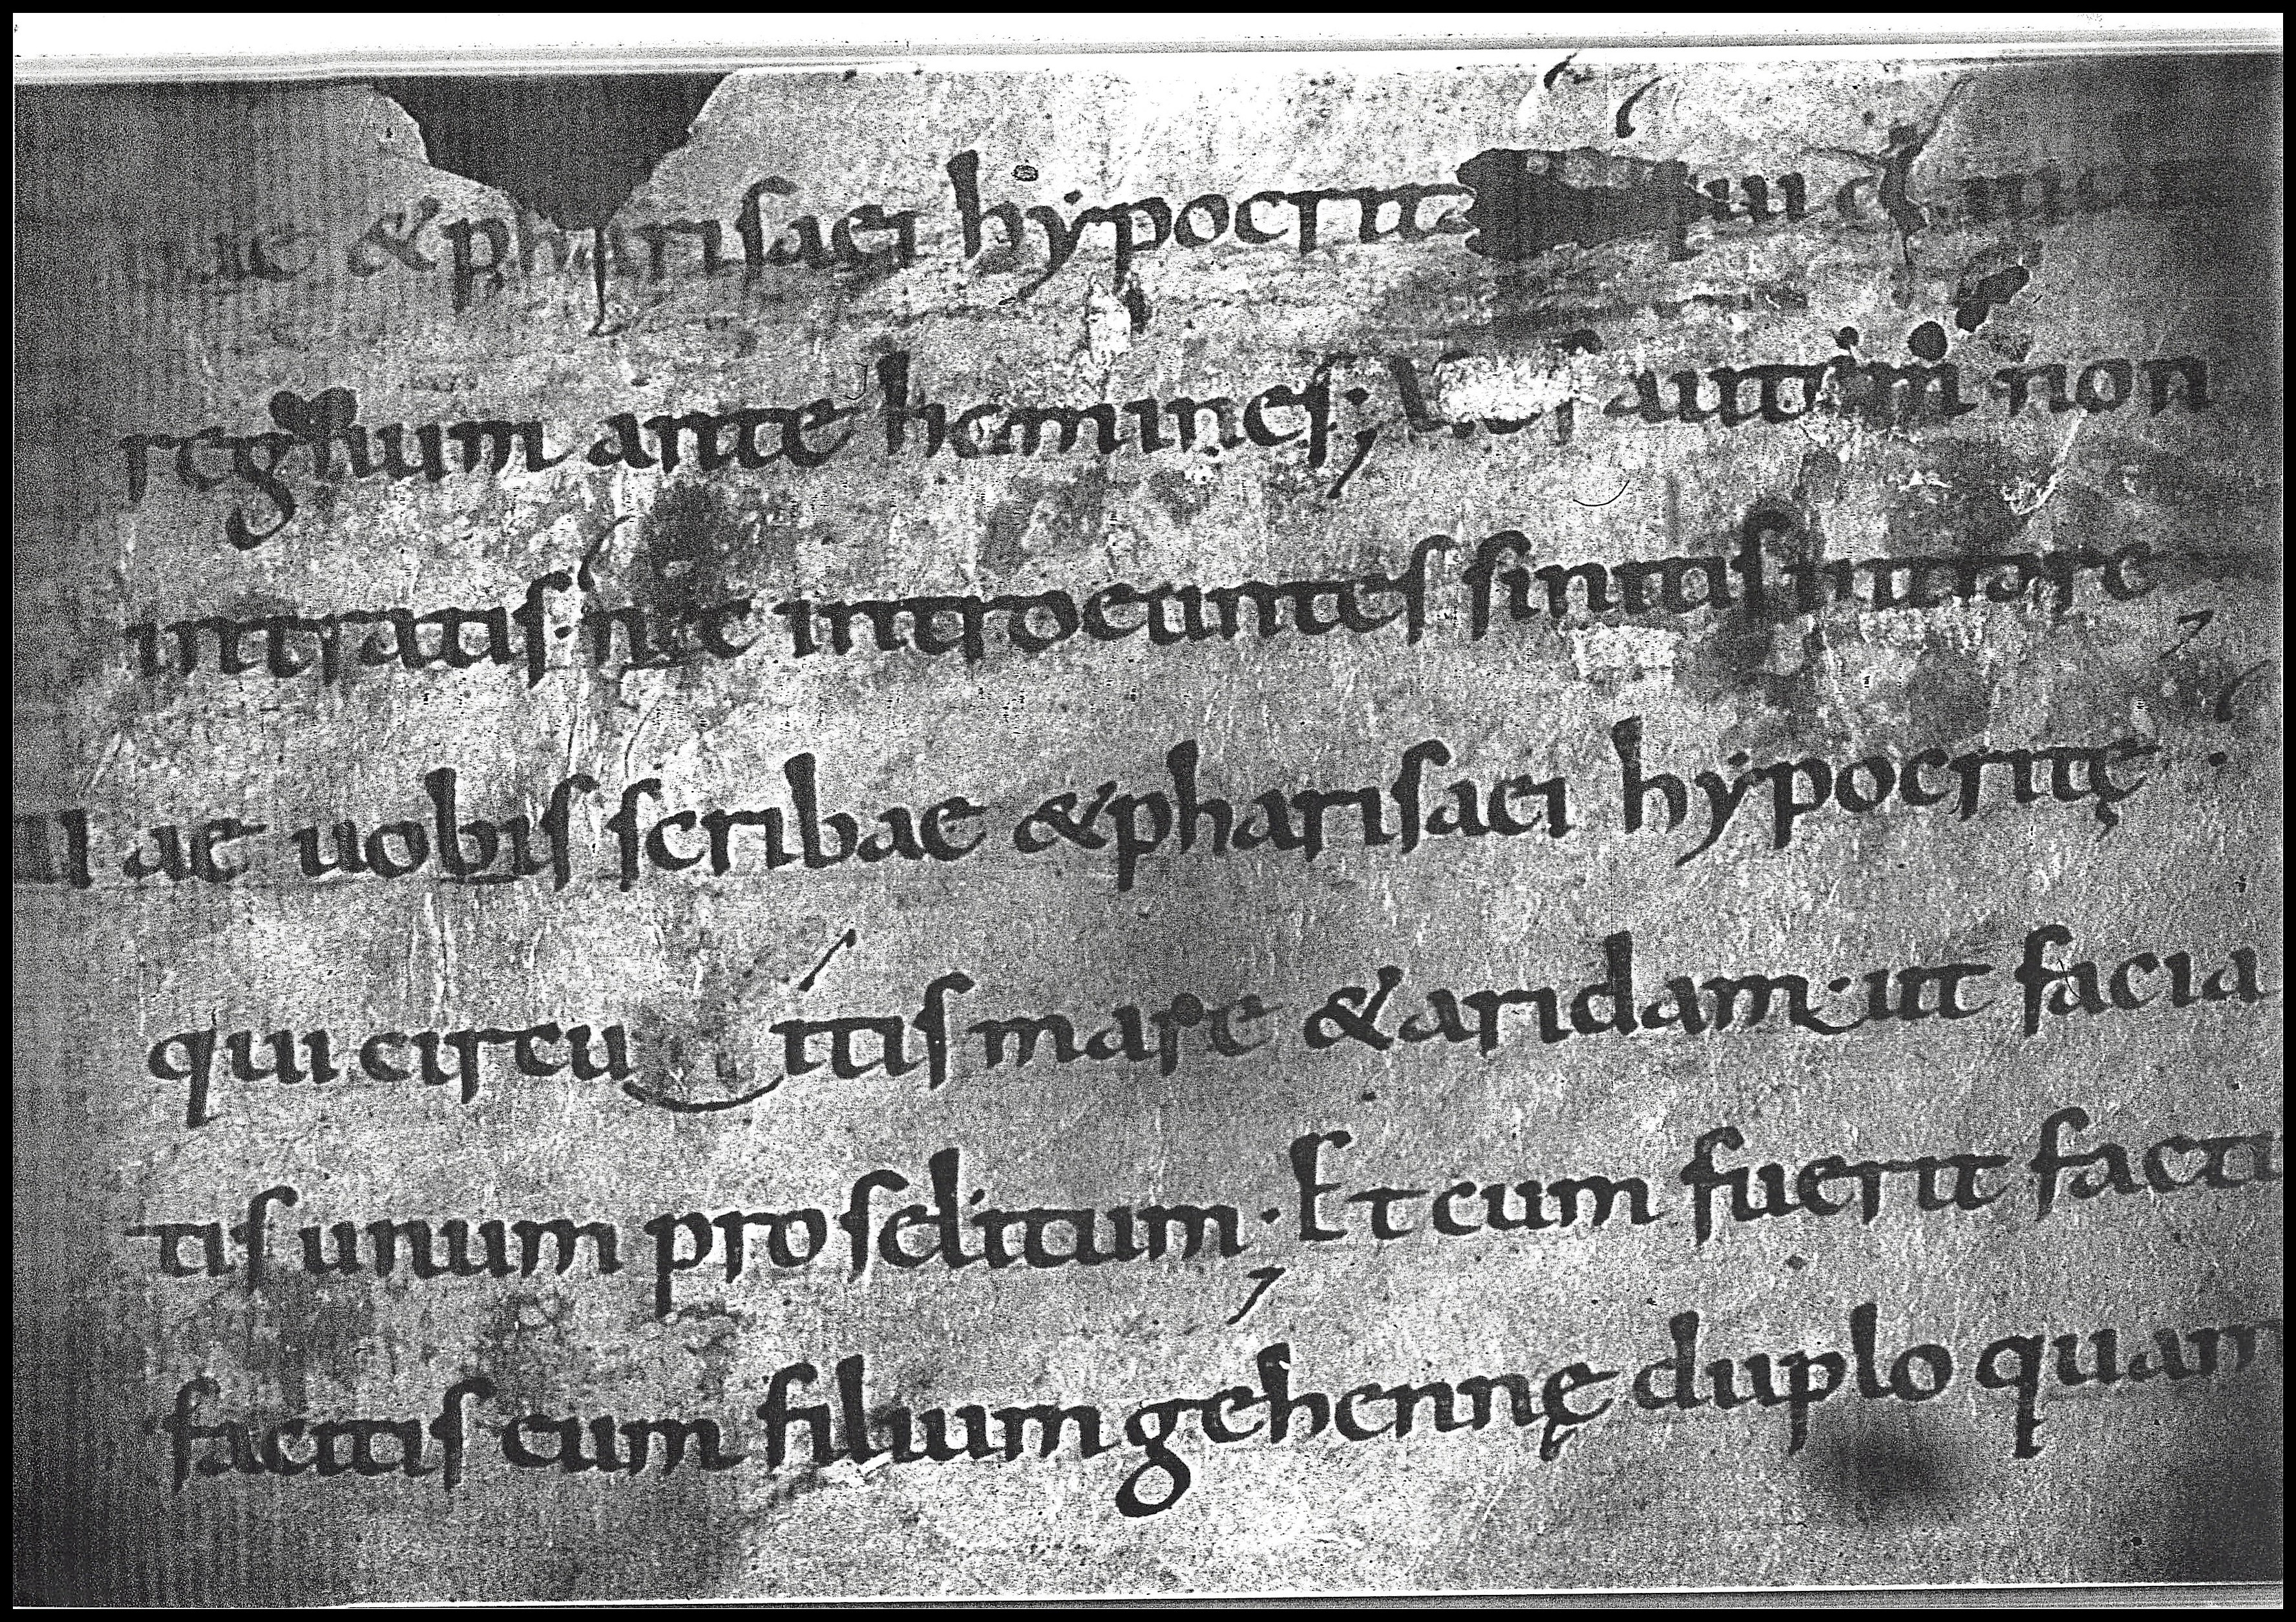 &pharisaei hẏpocrit qui
regnum ante homines; Uos autem non
intratis· nec introeuntes sinitis intrare
Uae uobis scribae &pharisaei hẏpocritę·
qui circu itis mare &aridam· ut facia
tis unum proselitum· Et cum fuerit factu
facitis eum filium gehennę duplo quam